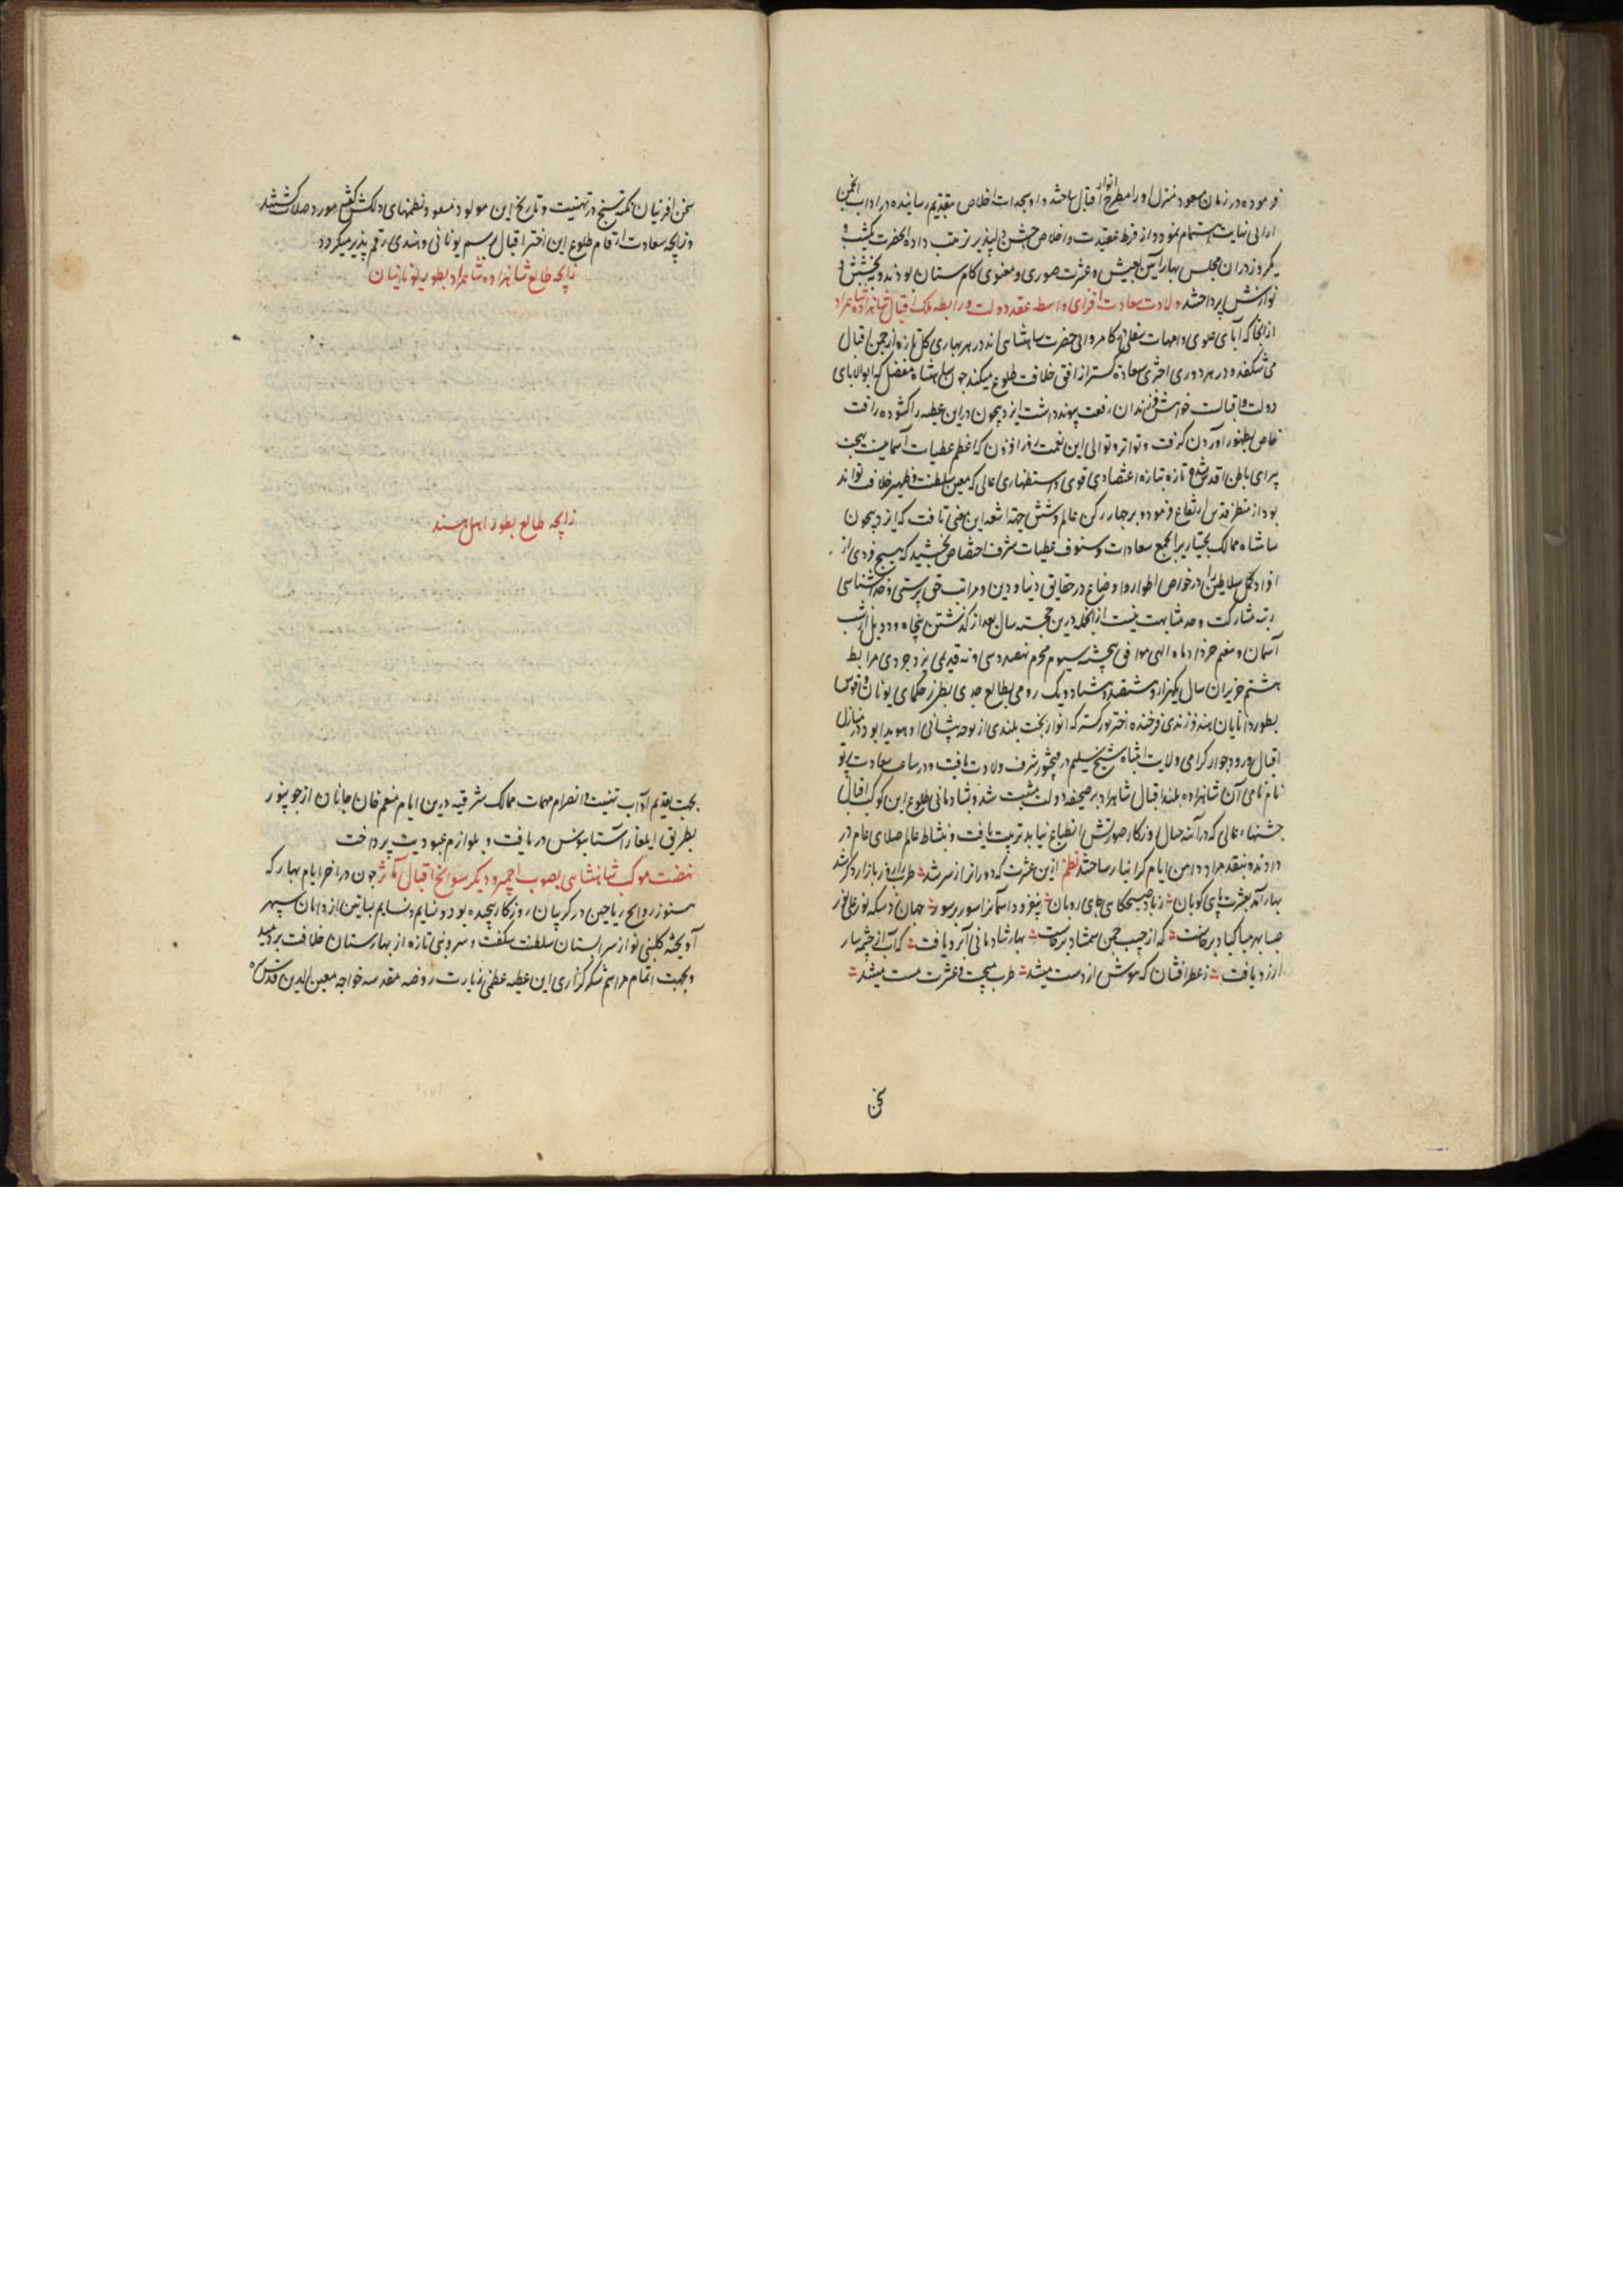 فرموده در زمان مسعود منزل او را مطرح انوار اقبال ساختند و او بسجدات اخلاص بتقدیم رسانیده در اداب انجمن
ارائی نهایت اهتمام نمود و از فرط عقیدت و اخلاص جشن دلپذیر ترتیب داده انحضرت یکشب و
یکروز در ان مجلس بهار آیین بعیش و عشرت صوری و معنوی کام ستان بودند و ببخشش و
نوازش پرداختند ولادت سعادت افزای واسطه عقد دولت و رابطه فلک اقبال شاهزاده شاهمراد
ازانجا که آبای علوی و امهات سفلی کامروائی حضرت شاهنشاهی اند در هر بهاری گل تازه از چمن اقبال
می شکفد و در هر دوری اختری سعادت گستر از افق خلافت طلوع میکند چون شاهنشاه مفضل که ابوالابای
دولت و اقبالست خواهش فرزندان رفعت پیوند داشت ایزد بیچون در این عطیه را کشوده رافت
خاص بظهور آوردن گرفت و تواتر و توالی این نعمت روز افزون که اعظم عطیات آسمانیست بهجت
پیرای باطن اقدس شد و تازه بتازه اعتضادی قوی و استظهاری عالی که معین سلطنت و ظهیر خلافت تواند
بود از منظر قدس ارتفاع فرموده بر چهار رکن عالم و شش جهت اشعه این معنی تافت که ایزد بیچون
شاهنشاه ممالک بختیار را بجمیع سعادات و صنوف عطیات شرف اختصاص بخشید که هیچ فردی از
افراد کمل سلاطین را در خواص اطوار و اوضاع در حقایق دنیا و دین و مراتب حق پرستی و خداشناسی
رتبه مشارکت و حد مشابهت نیست ازانجمله درین خجسته سال بعد از گذشتن پنجاه و دو پل از شب
آسمان و هفتم خرداد ماه الهی موافق پنجشنبه سیوم محرم نهصد و سی و نه قدیمی یزدجردی مرابط
هشتم حزیران سال یکهزار و هشتصد و هشتاد و یک رومی بطالع جدی بطرز حکمای یونان و قوس
بطور دانایان هند فرزندی فرخنده اختر نورگستر که انوار بخت بلندی از لوحه پیشانی او هویدا بود در منازل
اقبال ورود جوار گرامی ولایت انتباه شیخ سلیم در فتحپور شرف ولادت یافت و در ساعت سعادت پرتو
نام نامی آن شاهزاده بلند اقبال شاهمراد بر صحیفه دولت مثبت شد و بشادمانی طلوع این کوکب اقبال
جشنهاء عالی که در آئنه خیال روزگار صورتش انطباع نیابد ترتیب یافت و بنشاط عالم صلای عام در
دادند و بنقد مراد دامن ایام گرانبار ساختند نظم ازین عشرت که دوران از سر شد طرب را روز بازار دگر شد
بهار آمد بعشرت پای کوبان ز باد صبحگاهی جای روبان
صبا بهر صبا کباد برخاست که از جیب چمن شمشاد برخاست بهار شادمانی آبرو یافت که آب از چشمه سار
ارزو یافت ز عطرافشان که هوش از دست میشد طرب میجست و عشرت مست میشد
سخن
سخن افرینان نکته سنج در تهنیت و تاریخ این مولود مسعود نظمهای دلکش گفتند مورد صلات گشتند
و زایچه سعادت ارقام طلوع این اختر اقبال برسم یونانی و هندی رقم پذیر میگردد
زایچه طالع شاهزاده شاهمراد بطور یونانیان
زایچه طالع بطور اهل هند
بجهت تقدیم آداب تهنیت و انصرام مهمات ممالک شرقیه درین ایام منعم خان خانخانان از جونپور
بطریق ایلغار آستانبوس دریافت و بلوازم عبودیت پرداخت
نهضت موکب شاهنشاهی بصوب اجمیر و دیگر سوانح اقبال مآثر چون در اخر ایام بهار که
هنوز روایح ریاحین در گریبان روزگار پیچیده بود و نسایم بساتین از دامان سپهر
آویخته گلبنی نو از سرابستان سلطنت شگفت و سروبنی تازه از بهارستان خلافت بردمید
و بجهت اتمام مراسم شکرگذاری این عطیه عظمی زیارت روضه مقدسه خواجه معین الدین قدس سره